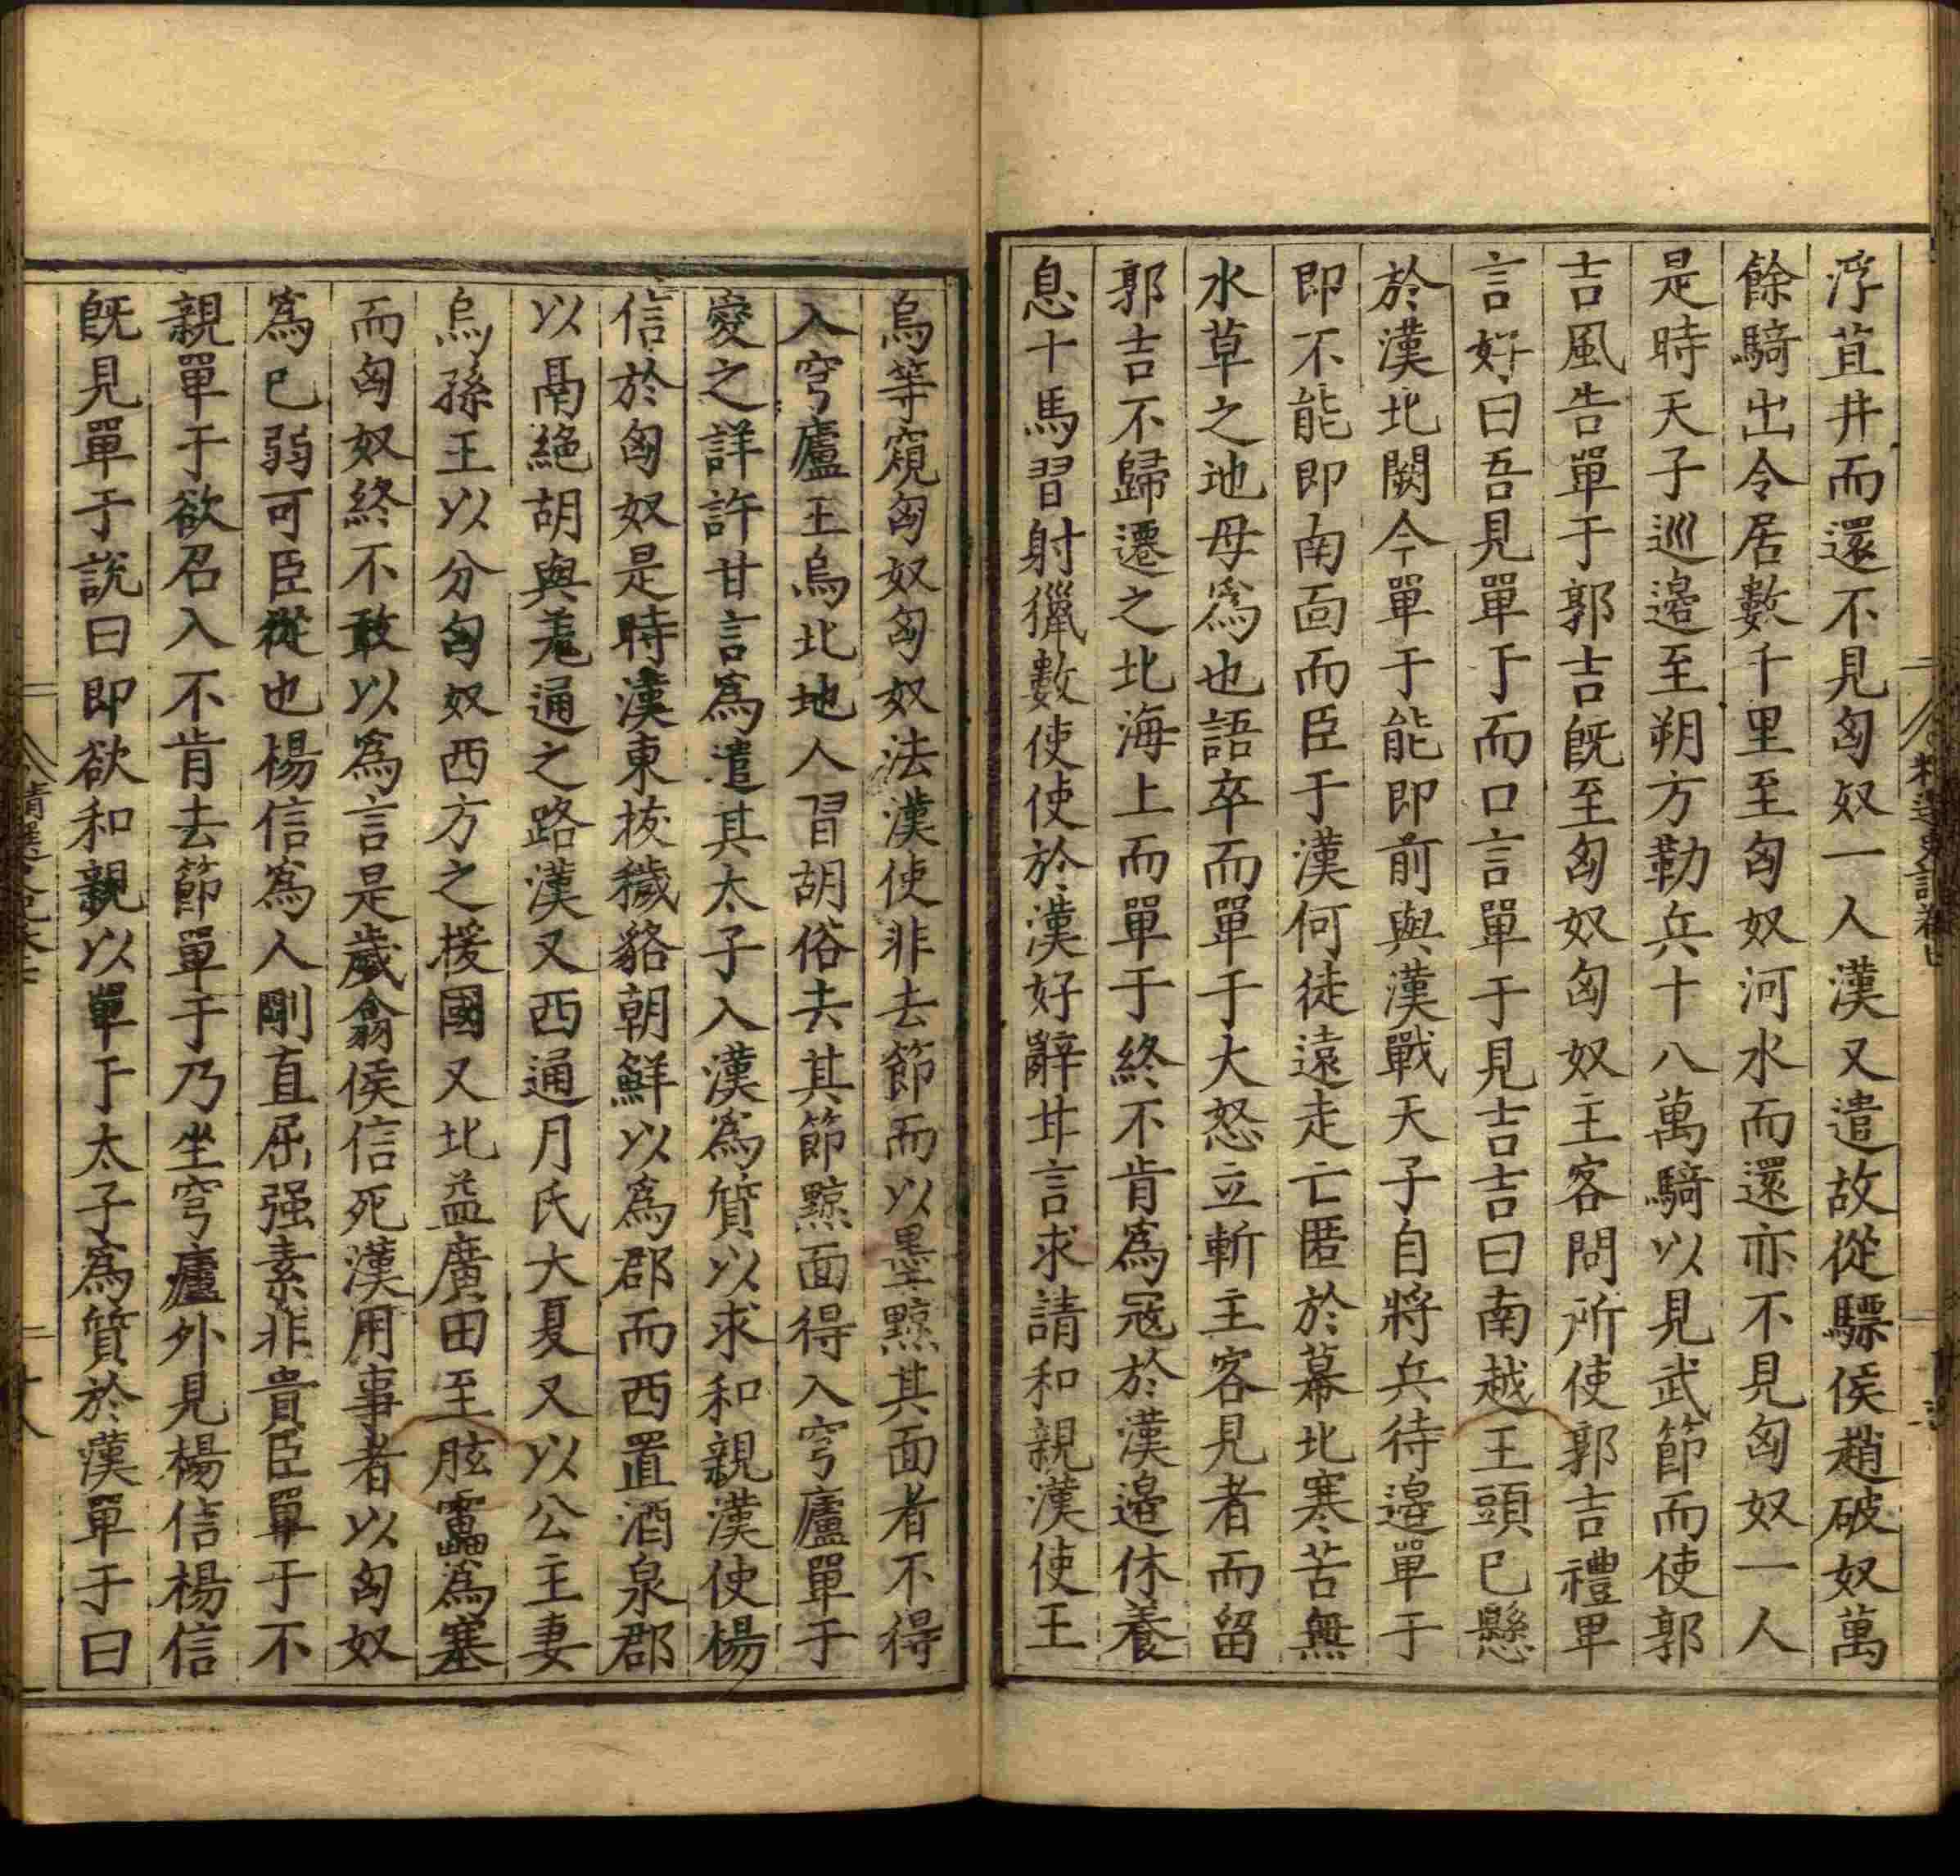 浮苴井而還不見匈奴一人漢又遣故從驃侯趙破奴萬
餘騎出令居數千里至匈奴河水而還亦不見匈奴一人
是時天子巡邉至朔方勒兵十八萬騎以見武節而使郭
吉風告單于郭吉旣至匈奴匈奴主客問所使郭吉禮畢
言好曰吾見單于而口言單于見吉吉曰南越王頭已懸
於漢北闕今單于能即前與漢戰天子自將兵待邉單于
即不能即南面而臣于漢何徒遠走亡匿於幕北寒苦無
水草之地毋爲也語卒而單于大怒立斬主客見者而留
郭吉不歸遷之北海上而單于終不肯爲寇於漢邉休養
息十馬習射獵數使使於漢好辭甘言求請和親漢使王
烏等窺匈奴匈奴法漢使非去節而以墨黥其面者不得
入穹廬王烏北地人習胡俗去其節黥面得入穹廬單于
愛之詳許甘言爲遣其太子入漢爲質以求和親漢使楊
信於匈奴是時漢東拔穢貉朝鮮以爲郡而西置酒泉郡
以鬲絕胡與羌通之路漢又西通月氏大夏又以公主妻
烏孫王以分匈奴西方之援國又北益廣田至胘靁爲塞
而匈奴終不敢以爲言是歲翕侯信死漢用事者以匈奴
爲已弱可臣從也楊信爲人剛直屈强素非貴臣單于不
親單于欲召入不肯去節單于乃坐穹廬外見楊信楊信
旣見單于說曰即欲和親以單于太子爲質於漢單于曰